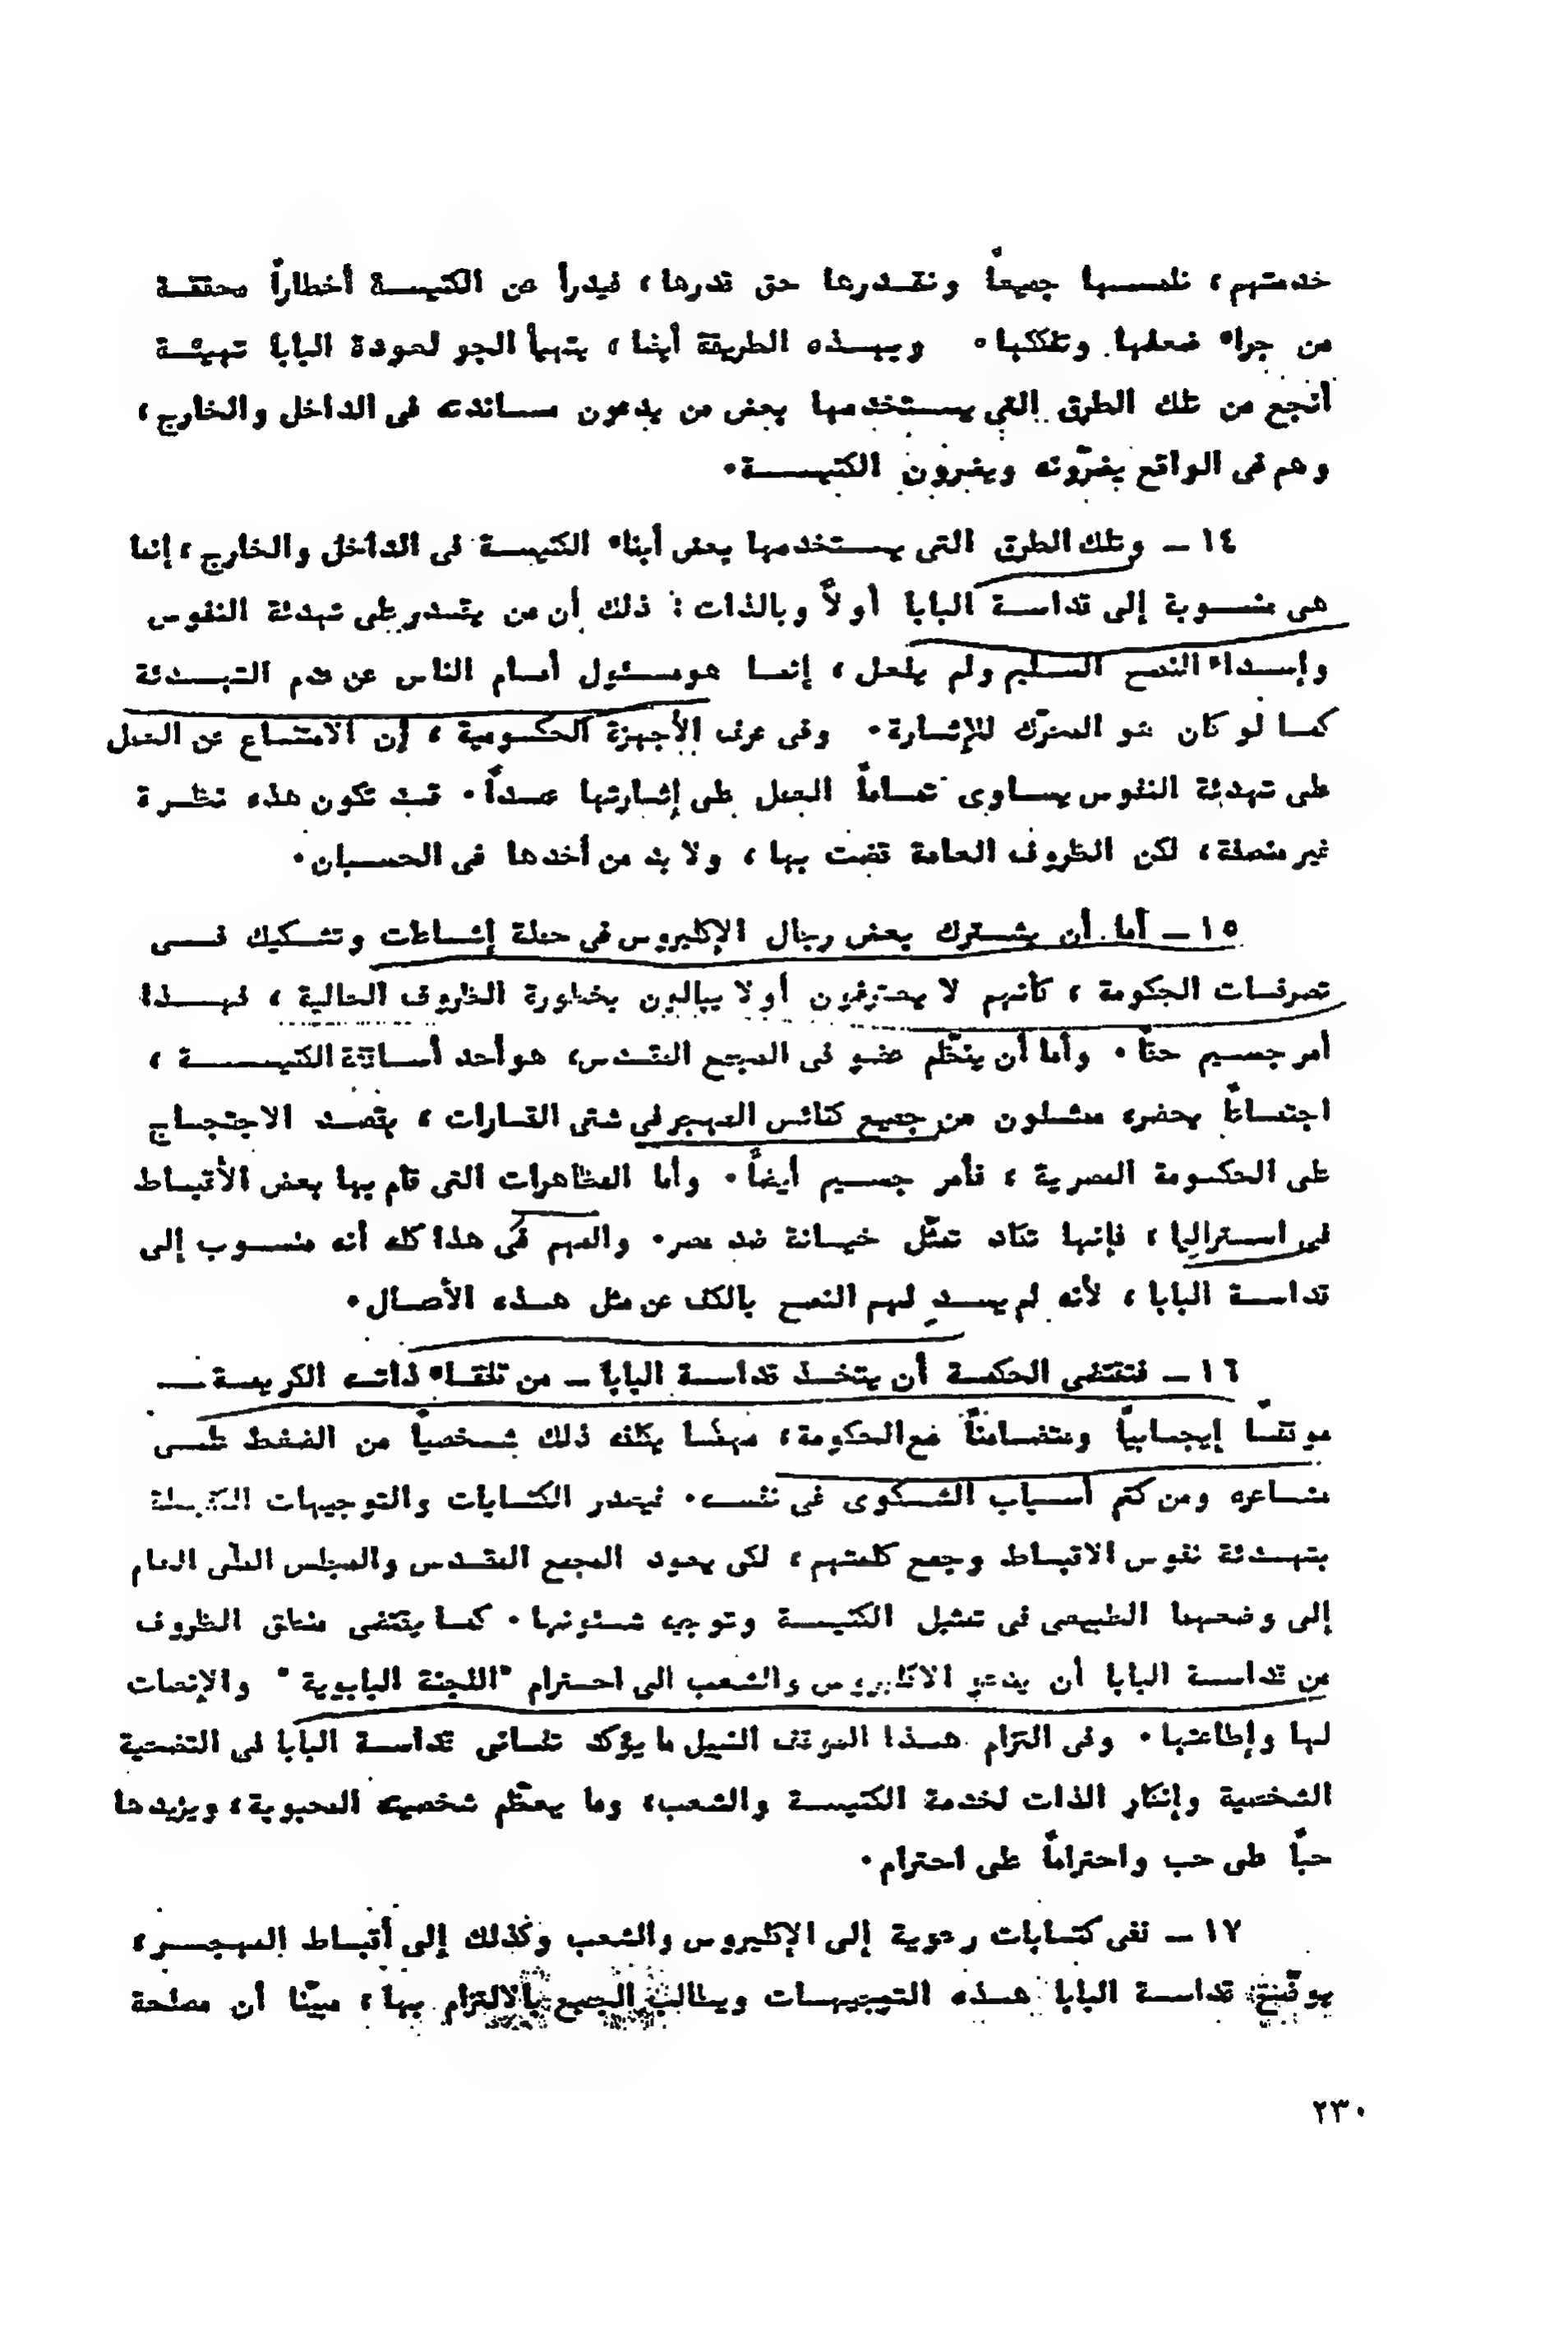 خدمتهم ، نلمسها جميعاً ونقدرها حق قدرها ، فيدرأ عن الكنيسة أخطاراً محققة
من جراء ضعفها وتفككها . وبهذه الطريقة أيضا ، يتهيأ الجو لعودة البابا تهيئة
أنجع من تلك الطرق التي يستخدمها بعض من يدعون مساندته في الداخل والخارج ،
وهم في الواقع يضرّونه ويضرون الكنيسة .
١٤ ــ وتلك الطرق التي يستخدمها بعض أبناء الكنيسة في الداخل والخارج ، إنما
هي منسوبة إلى قداسة البابا أولاً وبالذات : ذلك أن من يقدر على تهدئة النفوس
وإسداء النصح السليم ولم يفعل ، إنما هو مسئول أمام الناس عن عدم التهدئة
كما لو كان هو المحرّك للإثارة . وفي عرف الأجهزة الحكومية ، إن الامتناع عن العمل
على تهدئة النفوس يساوى تماماً العمل على إثارتها عمداً . قد تكون هذه نظرة
غير منصفة ، لكن الظروف العامة قضت بها ، ولا بد من أخذها في الحسبان .
١٥ ــ أما أن يشترك بعض رجال الإكليروس في حملة إشاعات وتشكيك في
تصرفات الحكومة ، كأنهم لا يعترفون أو لا يبالون بخطورة الظروف الحالية ، فهذا
أمر جسيم حقاً . وأما أن ينظّم عضو في المجمع المقدس ، هو أحد أساقفة الكنيسة ،
اجتماعاً يحضره ممثلون من جميع كنائس المهجر في شتى القارات ، بقصد الاحتجاج
على الحكومة المصرية ، فأمر جسيم أيضاً . وأما المظاهرات التي قام بها بعض الأقباط
في استراليا ، فإنها تكاد تمثّل خيانة ضد مصر . والمهم في هذا كله أنه منسوب إلى
قداسة البابا ، لأنه لم يسد لهم النصح بالكف عن مثل هذه الأعمال .
١٦ ــ فتقتضي الحكمة أن يتخذ قداسة البابا ــ من تلقاء ذاته الكريمة ــ
موقفاً إيجابياً ومتضامناً مع الحكومة ، مهما يكلفه ذلك شخصياً من الضغط على
مشاعره ومن كتم أسباب الشكوى في نفسه . فيصدر الكتابات والتوجيهات الكفيلة
بتهدئة نفوس الاقباط وجمع كلمتهم ، لكي يعود المجمع المقدس والمجلس الملّي العام
إلى وضعهما الطبيعي في تمثيل الكنيسة وتوجيه شئونها . كما يقتضي منطق الظروف
من قداسة البابا أن يدعو الاكليروس والشعب الى احترام "اللجنة البابوية" والإنصات
لها وإطاعتها . وفي التزام هذا الموقف النبيل ما يؤكد تفاني قداسة البابا في التضحية
الشخصية وإنكار الذات لخدمة الكنيسة والشعب ، وما يعظّم شخصيته المحبوبة ، ويزيدها
حبّاً على حب واحتراماً على احترام .
١٧ ــ ففي كتابات رعوية إلى الإكليروس والشعب وكذلك إلى أقباط المهجر ،
يوضّح قداسة البابا هذه التوجيهات ويطالب الجميع بالالتزام بها ، مبيّنا أن مصلحة
٢٣٠